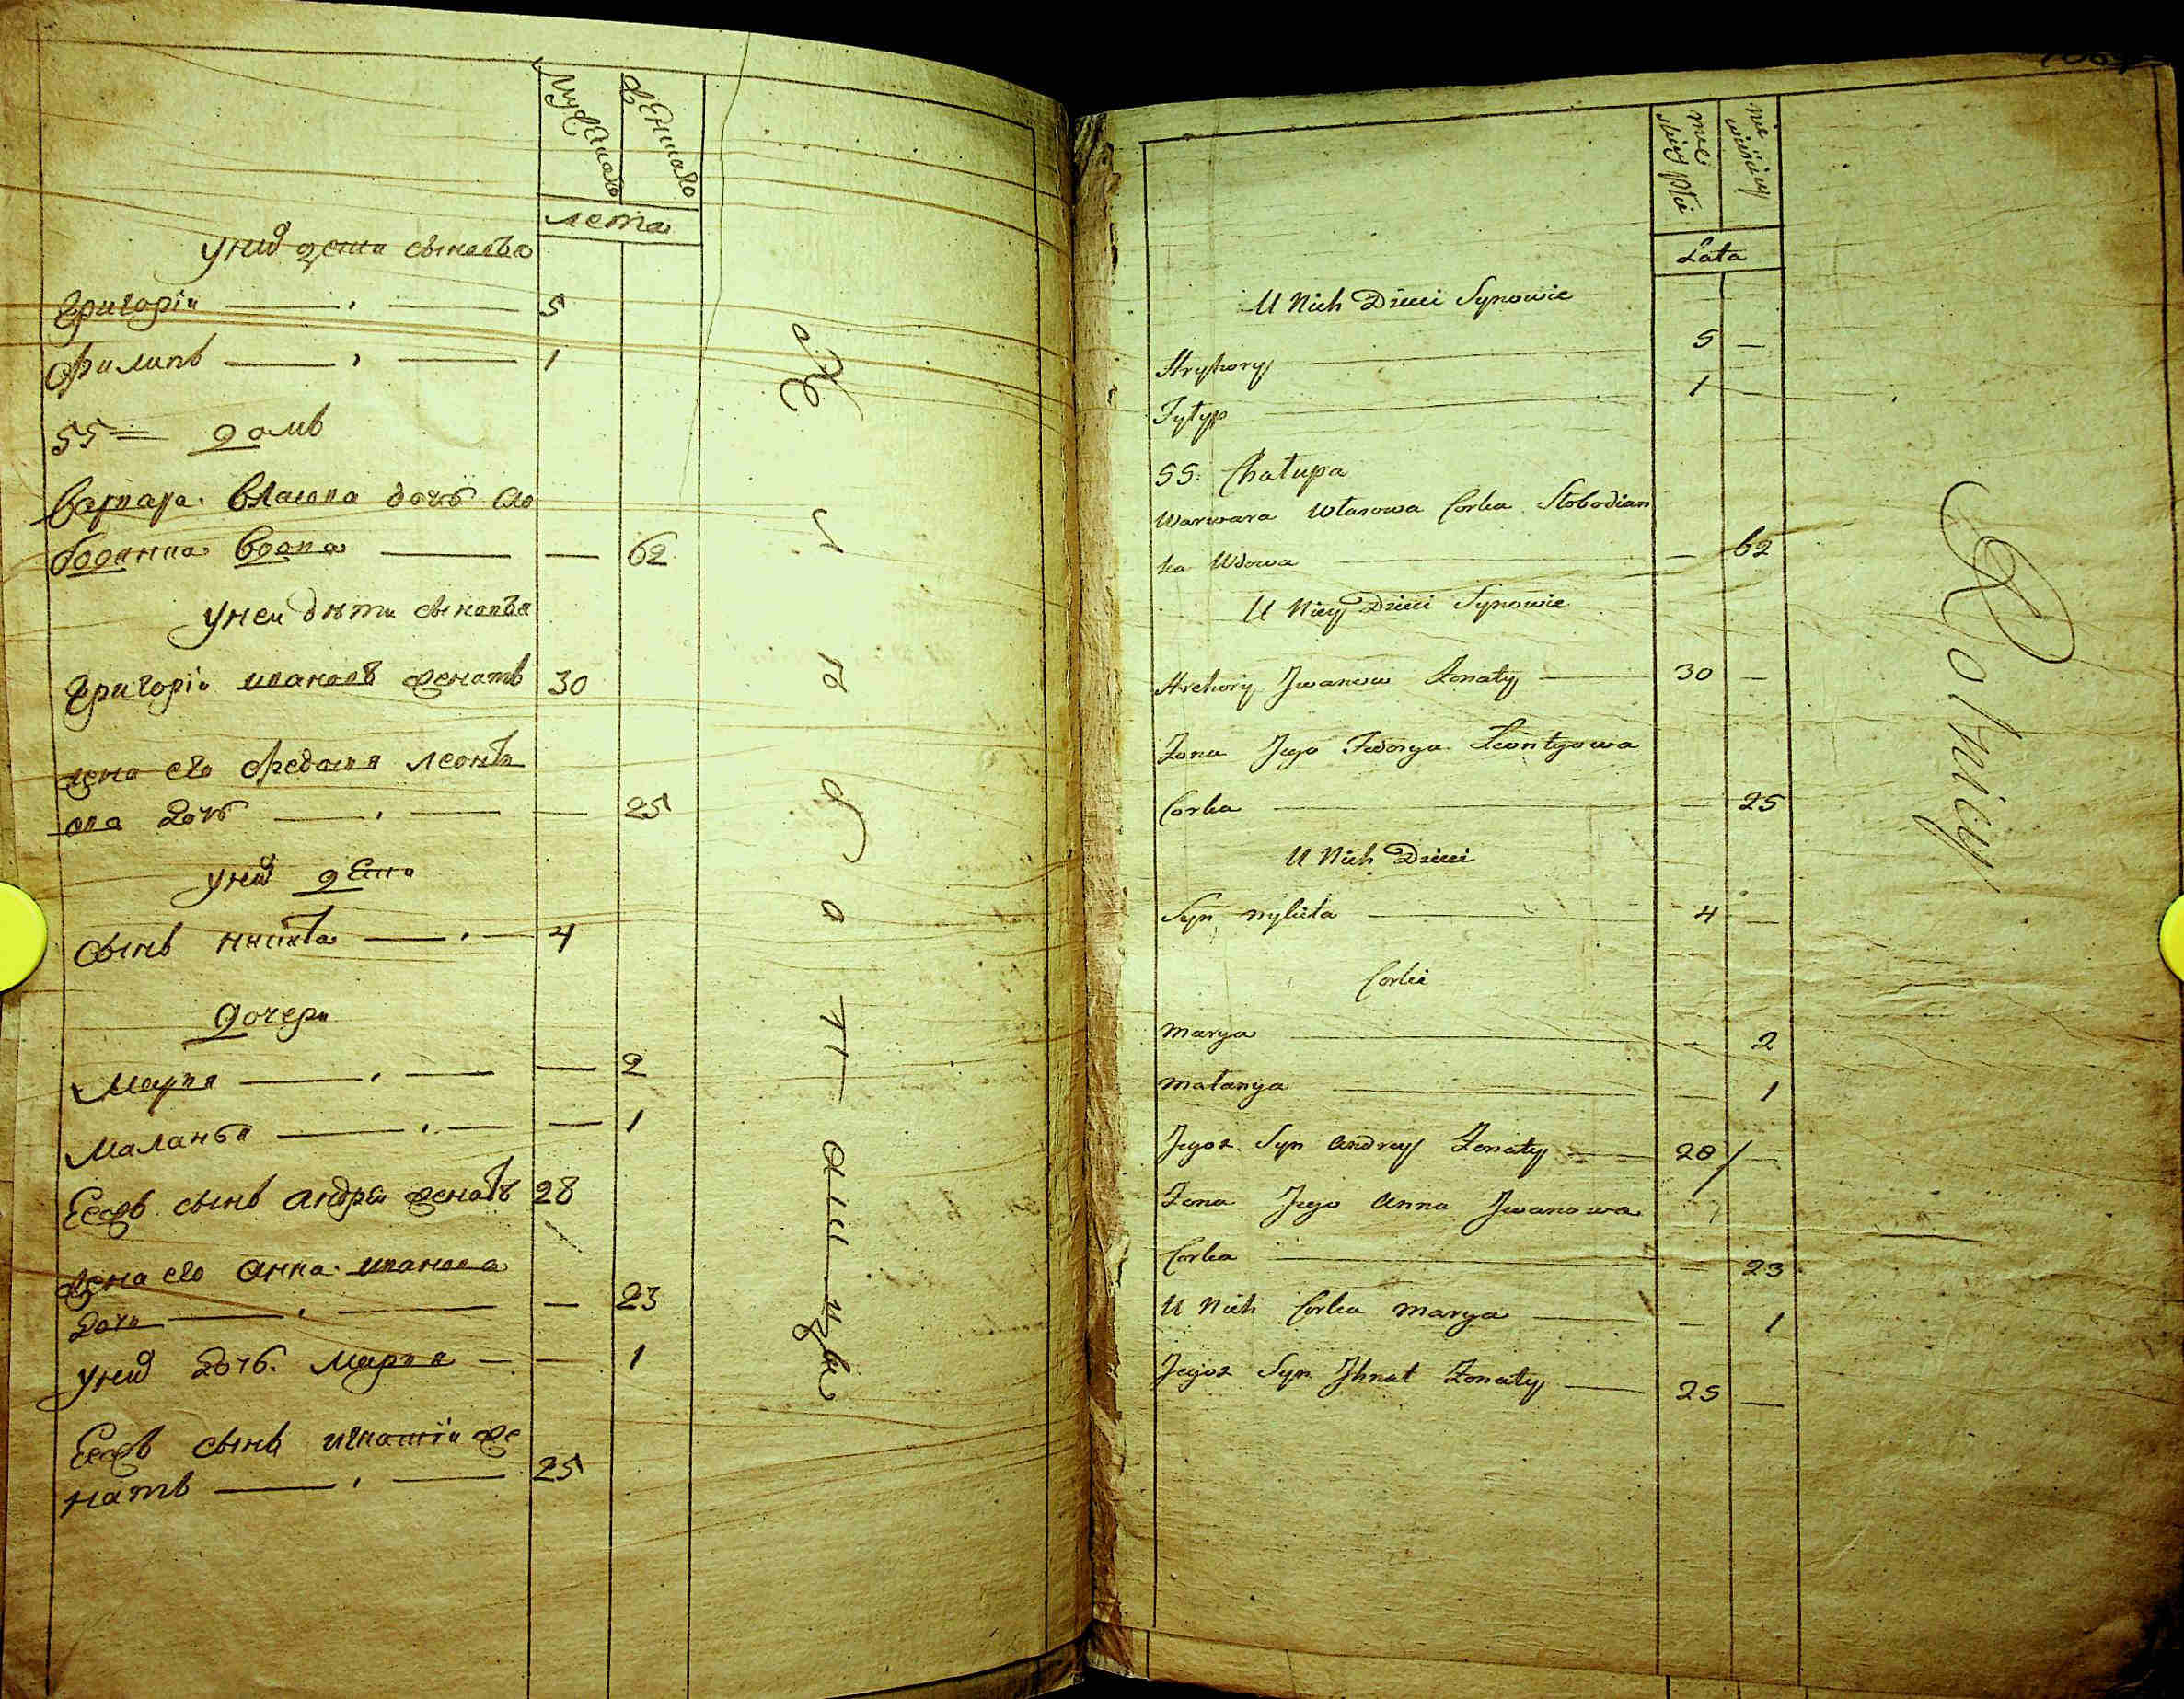 Мужеска
Женшаго
лета
у них дети сыновъя
Григорiи 5
Филипъ 1
55 домъ
Варвара Власова дочь Сло
бодянка вдова — 62
у неи дѣти сыновъя
Григорiи Иванов женатъ 30
жена его Федосия Леонтъ
ова дочь — 25
у них дети
сынъ Никита 4
дочери
Мария — 2
Маланья — 1
Еежъ сынъ Андрей женатъ 28
жена его Анна Иванова
дочь — 23
у них дочь Мария — 1
Ееежъ сынъ Игнатiи же
натъ 25
Lata
U Nich Dzieci Synowie
Hryhory 5 —
Fylyp 1 —
55. Chałupa
Warwara Własowa Corka Słobodian
ka Wdowa — 62
U Niey Dzieci Synowie
Hrehory Jwanow Żonaty 30 —
Żona Jego Fedosya Leontyowa
Corka — 25
U Nich Dzieci
Syn Mykita 4 —
Corki
Marya — 2
Małanya — 1
Jeyoż Syn Andrey Żonaty 28 —
Żona Jego Anna Jwanowa
Corka — 23
U Nich Corka Marya — 1
Jeyoż Syn Jhnat Żonaty 25 —
Rolnicy